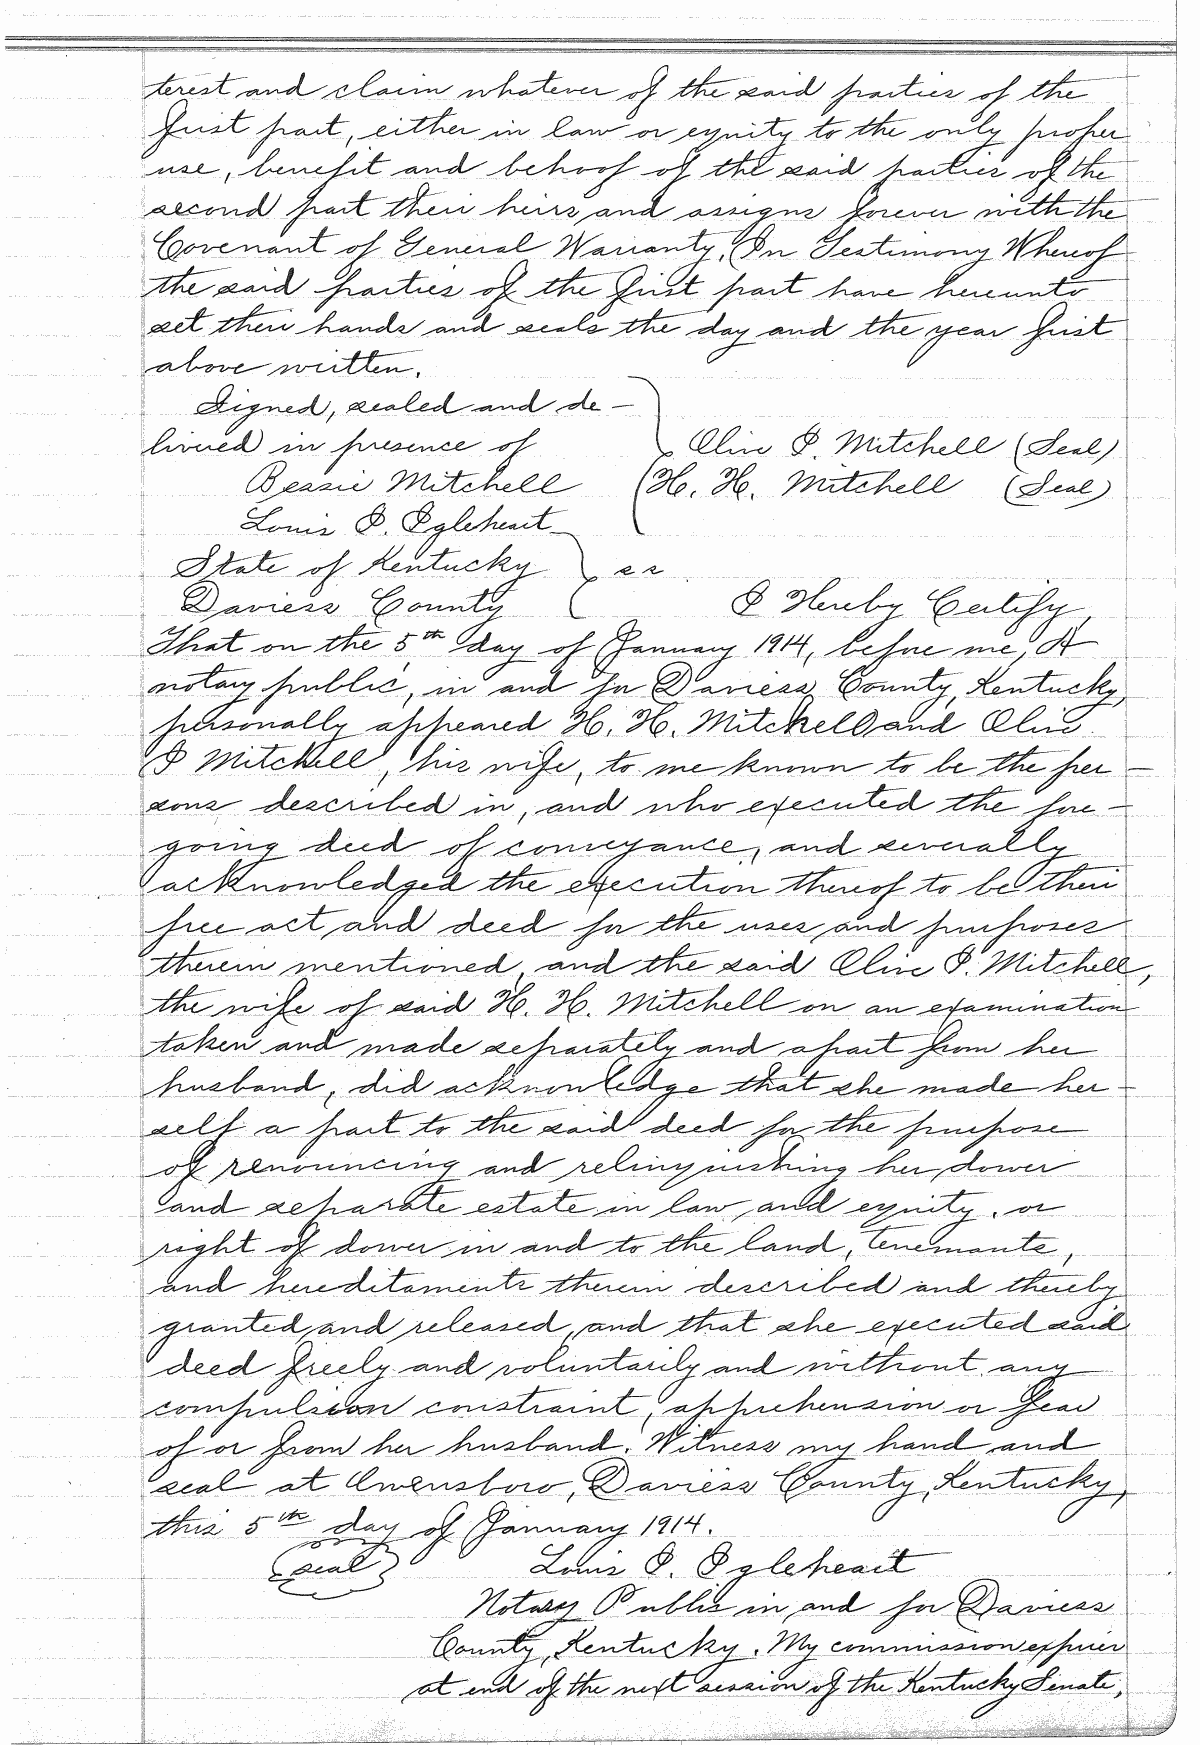 terest and claim whatever of the said parties of the
first part, either in law or equity to the only proper
use, benefit and behoof of the said parties of the
second part their heirs and assigns forever with the
Covenant of General Warranty, In Testimony Whereof
the said parties of the first part have hereunto
set their hands and seals the day and the year first
above written.
Signed, sealed and de-
livered in presence of
Olive I. Mitchell (Seal)
Bessie Mitchell H. H. Mitchell (Seal)
Louis I. Igleheart
State of Kentucky ss
Daviess County I Hereby Certify,
That on the 5th day of January 1914, before me, A
notary public, in and for Daviess County, Kentucky,
personally appeared H. H. Mitchell and Olive
I Mitchell, his wife, to me known to be the per-
sons described in, and who executed the fore-
going deed of conveyance, and severally
acknowledged the execution thereof to be their
free act and deed for the uses and purposes
therein mentioned, and the said Olive I. Mitchell,
the wife of said H. H. Mitchell on an examination
taken and made separately and apart from her
husband, did acknowledge that she made her-
self a part to the said deed for the purpose
of renouncing and relinquishing her dower
and separate estate in law and equity, or
right of dower in and to the land, tenemants,
and hereditaments therein described and thereby
granted and released, and that she executed said
deed freely and voluntarily and without any
compulsion constraint, apprehension or fear
of or from her husband. Witness my hand and
seal at Owensboro, Daviess County, Kentucky,
this 5th day of January 1914.
(seal) Louis I. Igleheart
Notary Public in and for Daviess
County, Kentucky. My commission expires
at end of the next session of the Kentucky Senate,